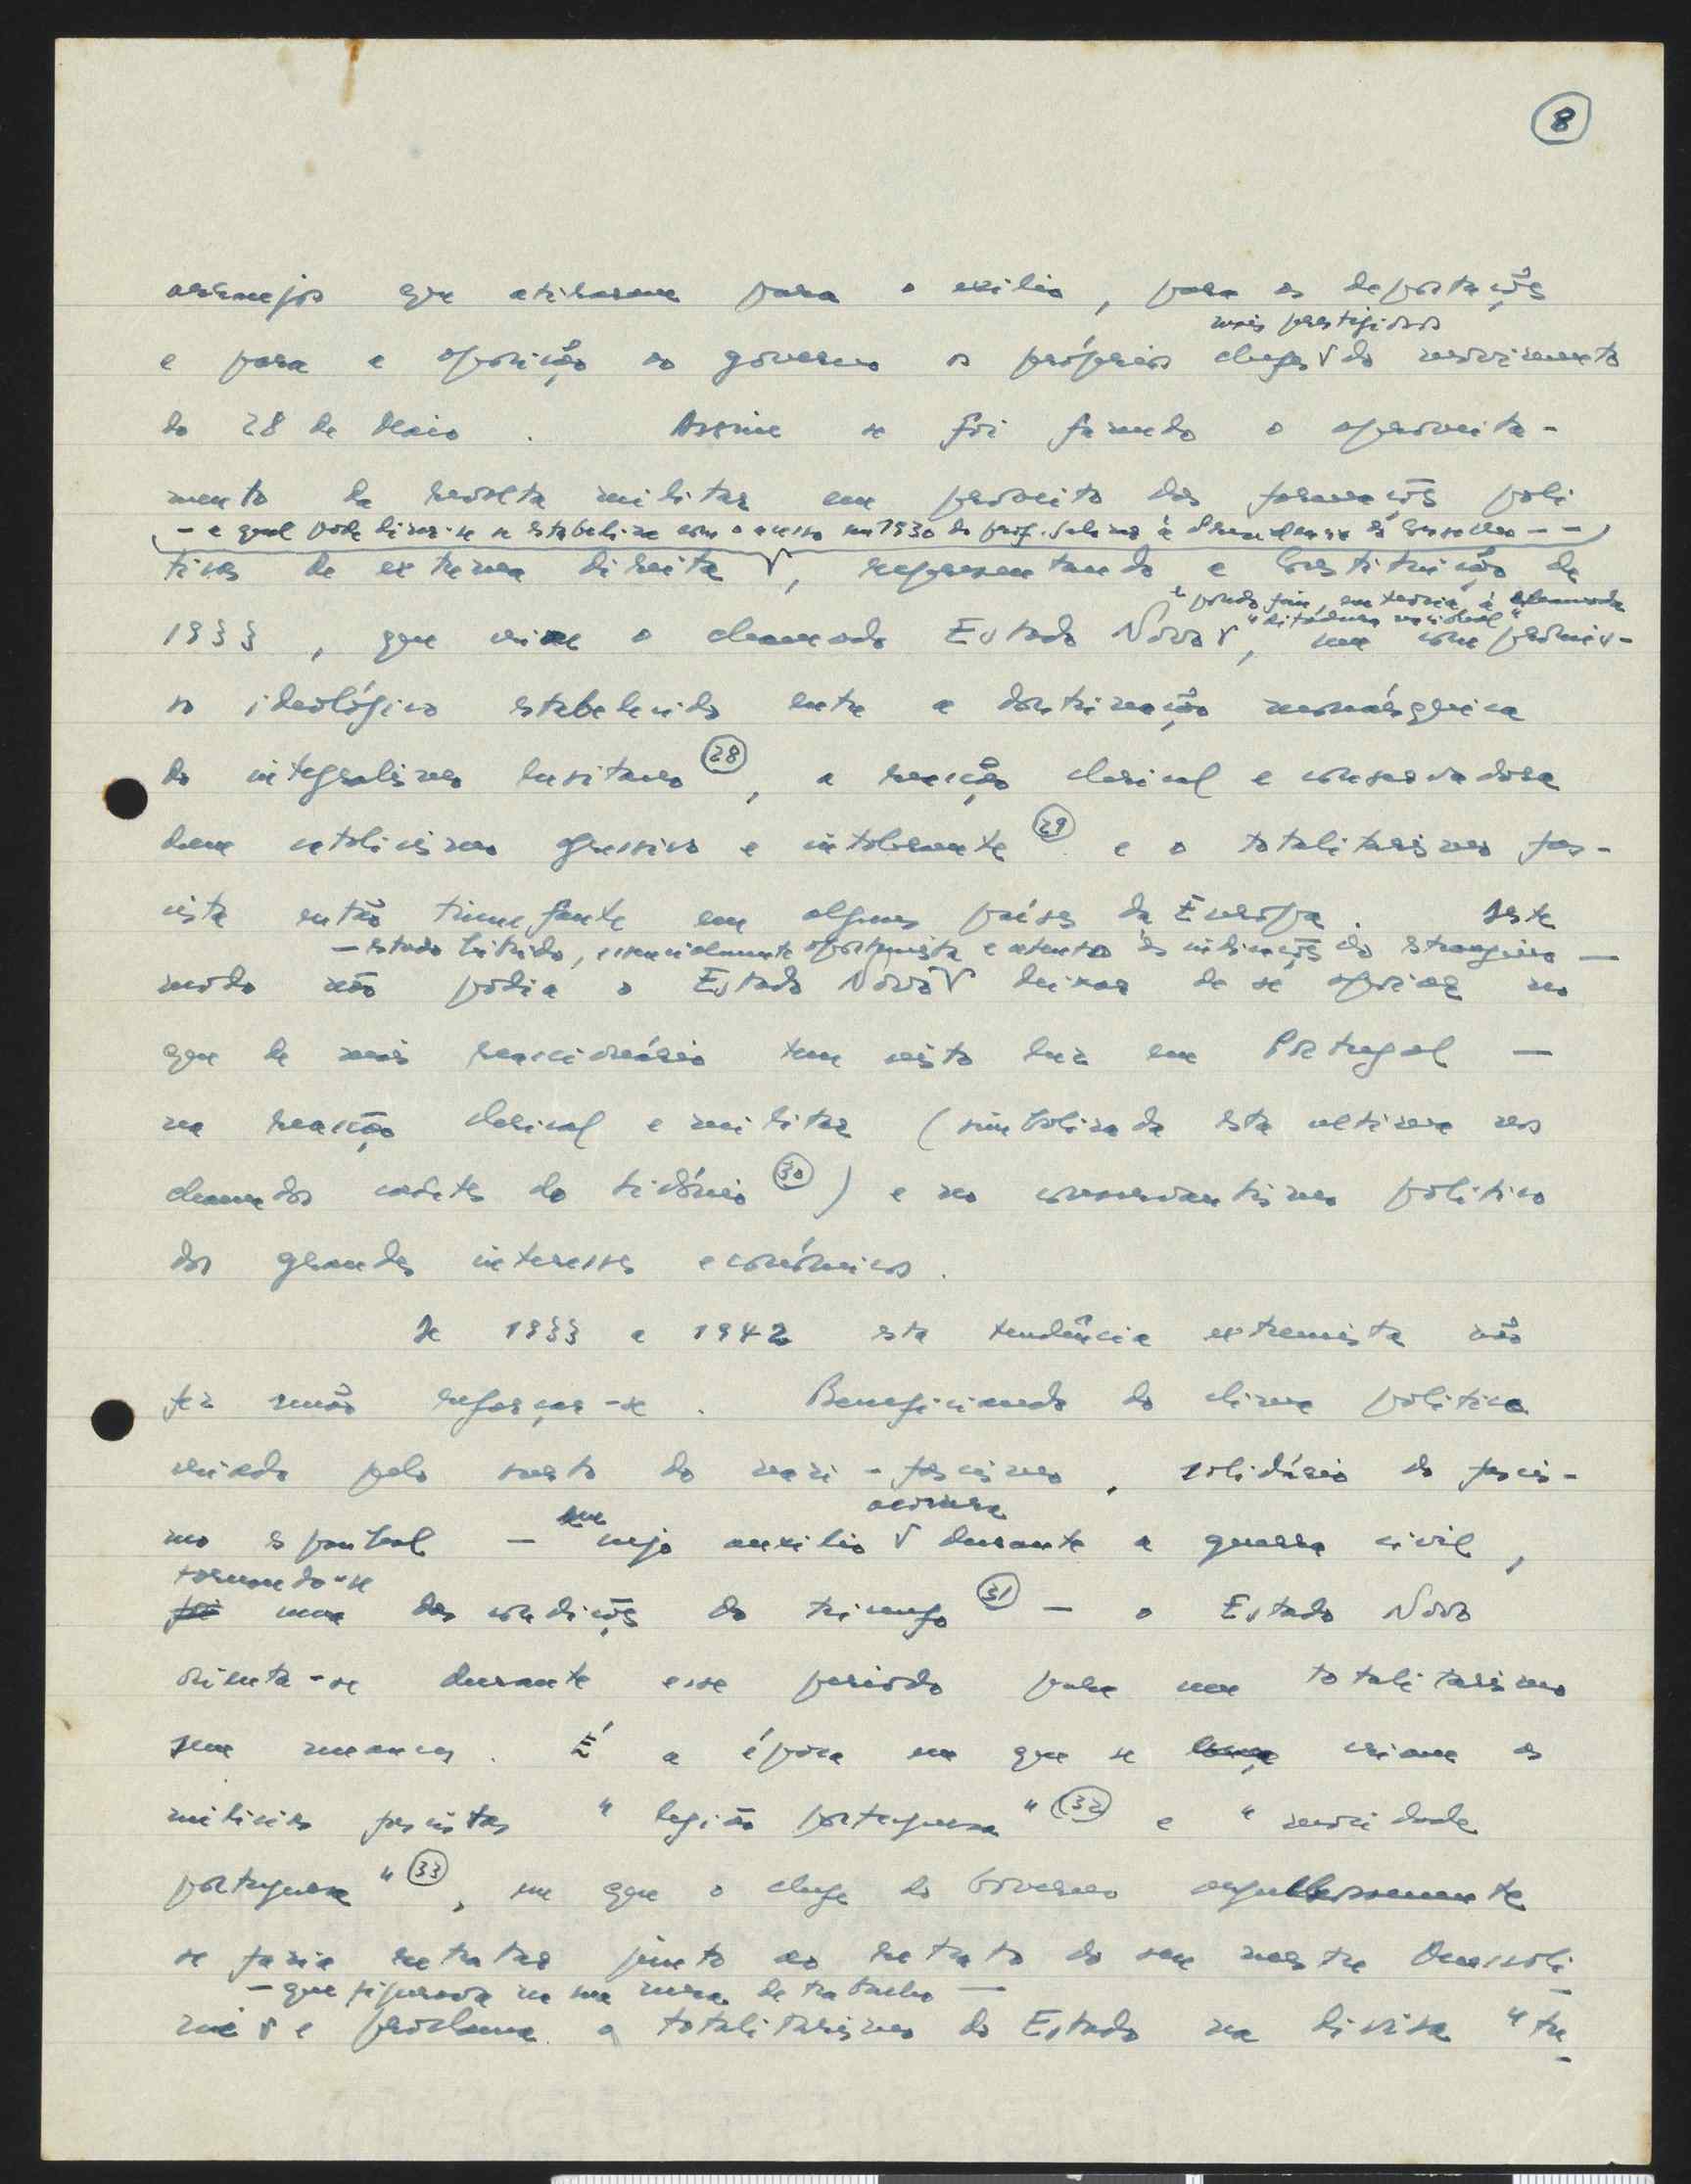 8
arranjos que atiraram para o exílio, para as deportações
mais prestigiosos
e para a oposição ao governo os próprios chefes do movimento
do 28 de Maio. Assim se foi fazendo o aproveita-
mento da revolta militar em proveito das formações polí
- a qual pode dizer-se se estabiliza com o acesso em 1930 do prof. Salazar à Presidência do Conselho -
ticas de extrema direita, representando a Constituição de
e pondo fim, em teoria, à chamada
"ditadura nacional"
1933, que cria o chamado Estado Novo, um compromis-
so ideológico estabelecido entre a doutrinação monárquica
do integralismo lusitano (28), a reacção clerical e conservadora
dum catolicismo agressivo e intolerante (29) e o totalitarismo fas-
cista então triunfante em alguns países da Europa. Deste
- estado híbrido, essencialmente oportunista e atento às indicações do estrangeiro -
modo não podia o Estado Novo deixar de se apoiar no
que de mais reaccionário tem visto luz em Portugal -
na reacção clerical e militar (simbolizada esta ultima nos
chamados cadetes do sidónio (30)) e no conservantismo politico
dos grandes interesses económicos.
De 1933 a 1942 esta tendência extremista não
fez senão reforçar-se. Beneficiando do clima politico
criado pelo surto do nazi-fascismo, solidário do fascis-
acorrera
mo espanhol - em cujo auxilio durante a guerra civil,
tornando-se
foi uma das condições do triunfo (31) - o Estado Novo
orienta-se durante esse periodo para um totalitarismo
sem nuances. É a época em que se criam as
milicias fascistas "legião portuguesa" (32) e "mocidade
portuguesa" (33), em que o chefe do Governo orgulhosamente
se fazia retratar junto ao retrato do seu mestre Mussoli
- que figurava na sua mesa de trabalho -
ni e proclama o totalitarismo do Estado na divisa "tu